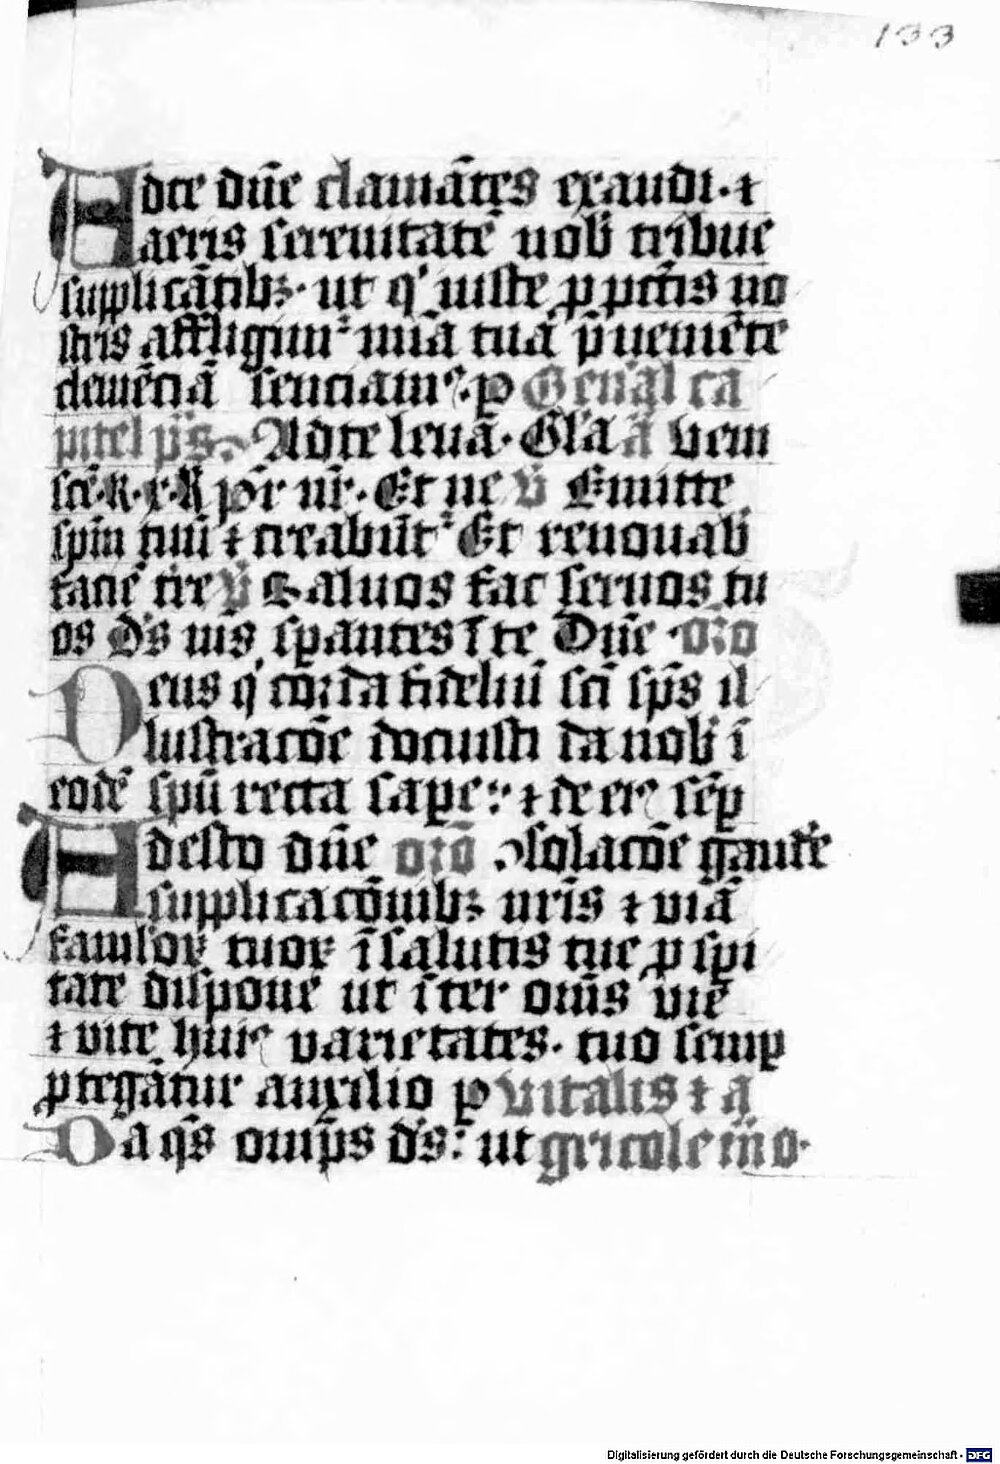 133
Adte dn̄e clamātes exaudi · ⁊
aeris serenitatē nob̄ tribue
supplicātibꝫ · ut qͥ iuste ꝓ pctīs no
stris affligimur mīa tuā p̄ueniēte
clemētiā senciamꝰ · ꝑ Gen̄al ca
pitel p̄s · Adte leuā · Gl̓a a᷑ Veni
scē · k · x · k pr̄ nr̄ · Et ne v̄ Emitte
spm̄ tuū ⁊ creabūt᷑ Et renouab̄
faciē tr̄e v̄ Saluos fac seruos tu
os ds̄ ms̄ spantes ī te Dn̄e · or̄o
Deus qͥ corda fideliū scī sp̄s il
lustracōe docuisti da nob̄ ī
eodē spū recta sape ⁊ de eiꝰ sēp
Adesto dn̄e or̄o ꝯsolacōe gaudē
supplicacōnibꝫ nr̄is ⁊ viā
famloꝝ tuoꝝ ī salutis tue ꝓspi
tate dispone ut īter om̄s vie
⁊ vite huiꝰ varietates · tuo semꝑ
ꝓtegātur auxilio ꝑ vitalis ⁊ a
Da qs̄ omp̄s ds̄ : ut gricole m̄o ·
Digitalisierung gefördert durch die Deutsche Forschungsgemeinschaft - DFG